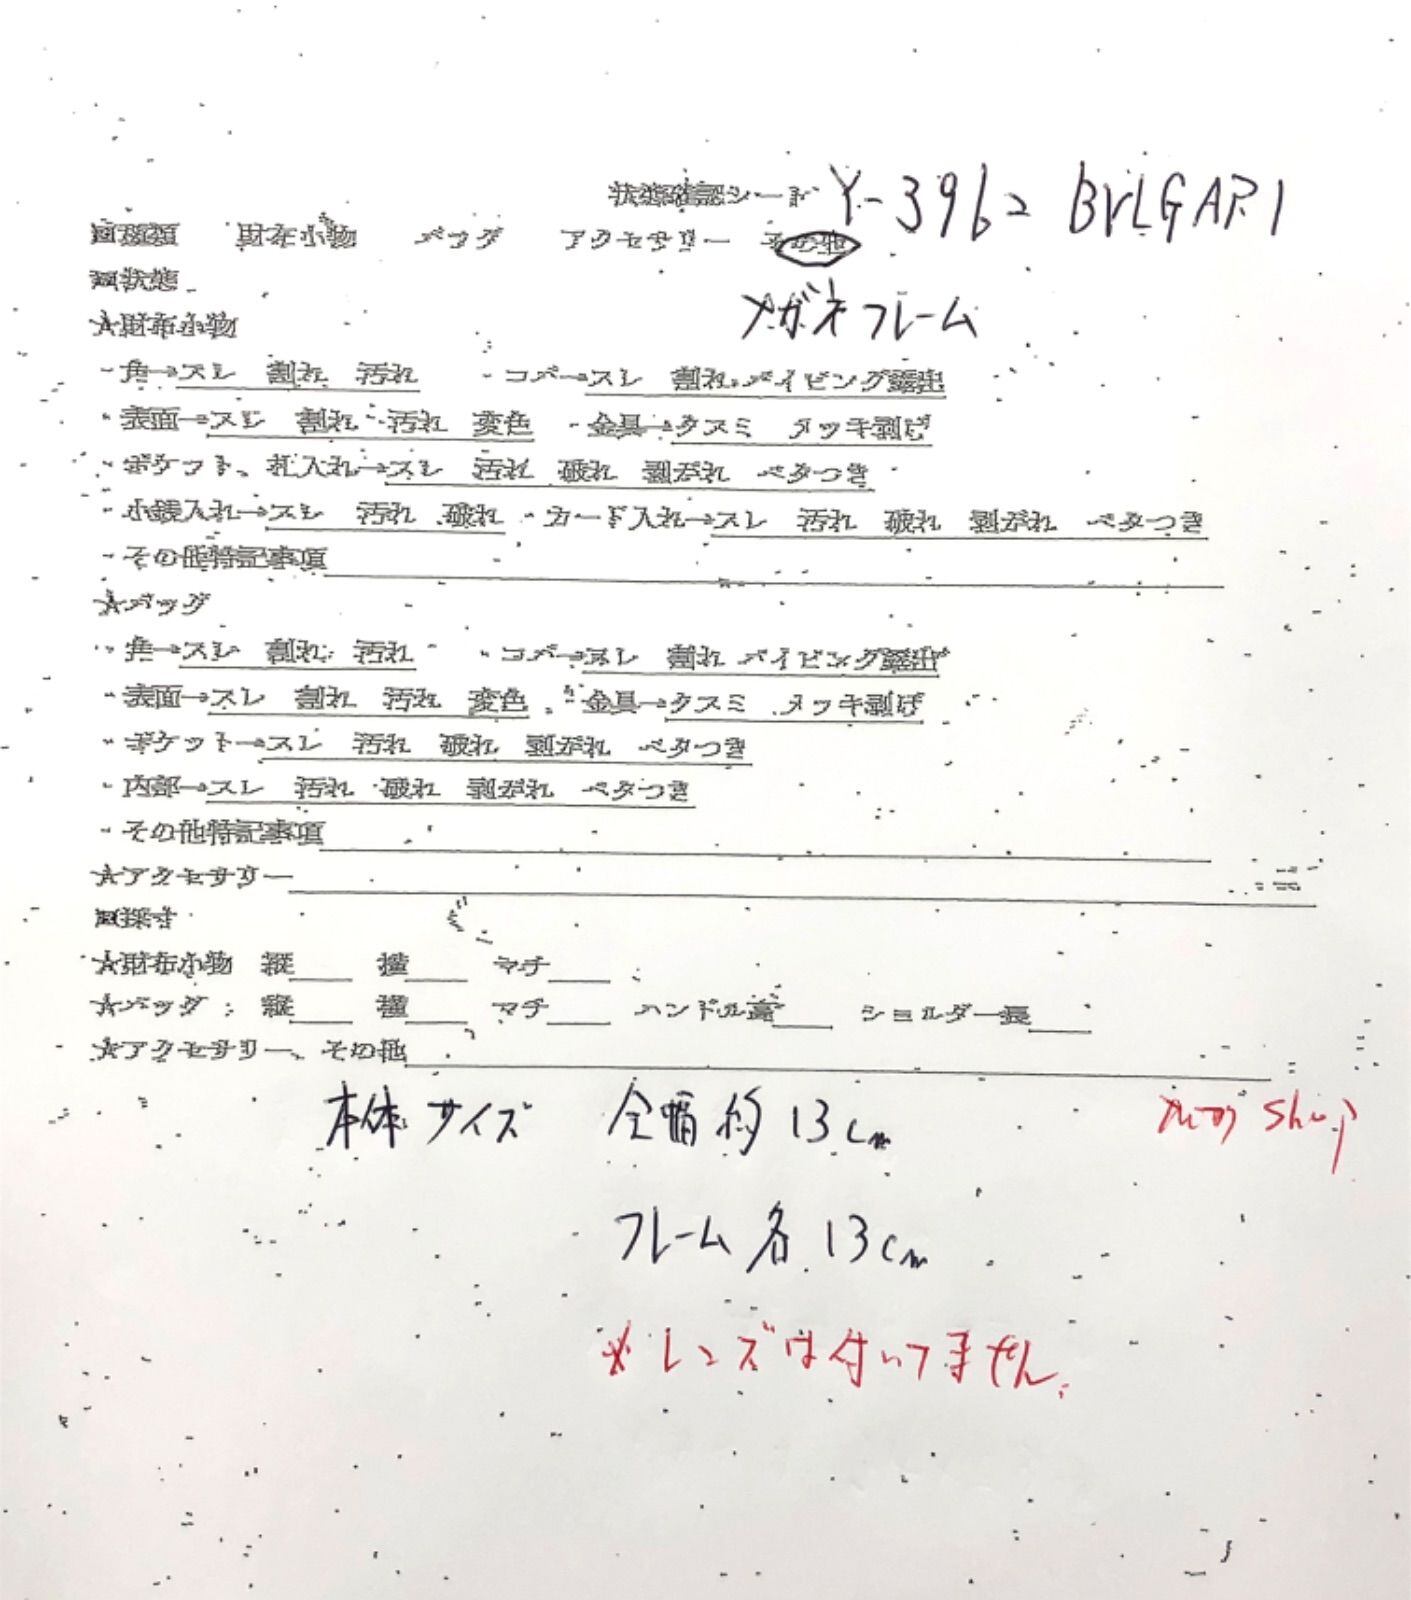 状態確認シート Y-3962 BVLGARI
■種類 財布小物 バッグ アクセサリー その他
■状態
メガネフレーム
★財布小物
・角→スレ 割れ 汚れ ・コバ→スレ 割れ パイピング露出
・表面→スレ 割れ 汚れ 変色 ・金具→クスミ メッキ剥げ
・ポケット、札入れ→スレ 汚れ 破れ 剥がれ ベタつき
・小銭入れ→スレ 汚れ 破れ ・カード入れ→スレ 汚れ 破れ 剥がれ ベタつき
・その他特記事項
★バッグ
・角→スレ 割れ 汚れ ・コバ→スレ 割れ パイピング露出
・表面→スレ 割れ 汚れ 変色 ・金具→クスミ メッキ剥げ
・ポケット→スレ 汚れ 破れ 剥がれ ベタつき
・内部→スレ 汚れ 破れ 剥がれ ベタつき
・その他特記事項
★アクセサリー
■採寸
★財布小物 縦 横 マチ
★バッグ 縦 横 マチ ハンドル高 ショルダー長
★アクセサリー、その他
本体サイズ 全幅 約 13cm
shop
フレーム各 13cm
※レンズは付いてません。